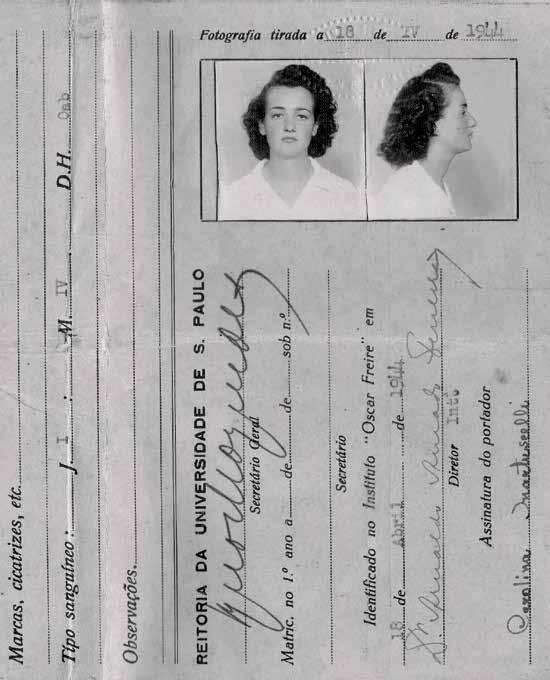 Fotografia tirada a 18 de IV de 1944
Marcas, cicatrizes, etc.
Tipo sanguíneo: J. I : M. IV . D.H. Oab
Observações.
REITORIA DA UNIVERSIDADE DE S. PAULO
Secretário Geral
Matric. no 1.º ano a de de sob n.º
Secretário
Identificado no Instituto "Oscar Freire" em
18 de Abril de 1944
Dr. Arnaldo Amado Ferreira
Diretor Intº
Assinatura do portador
Carolina Martuscelli